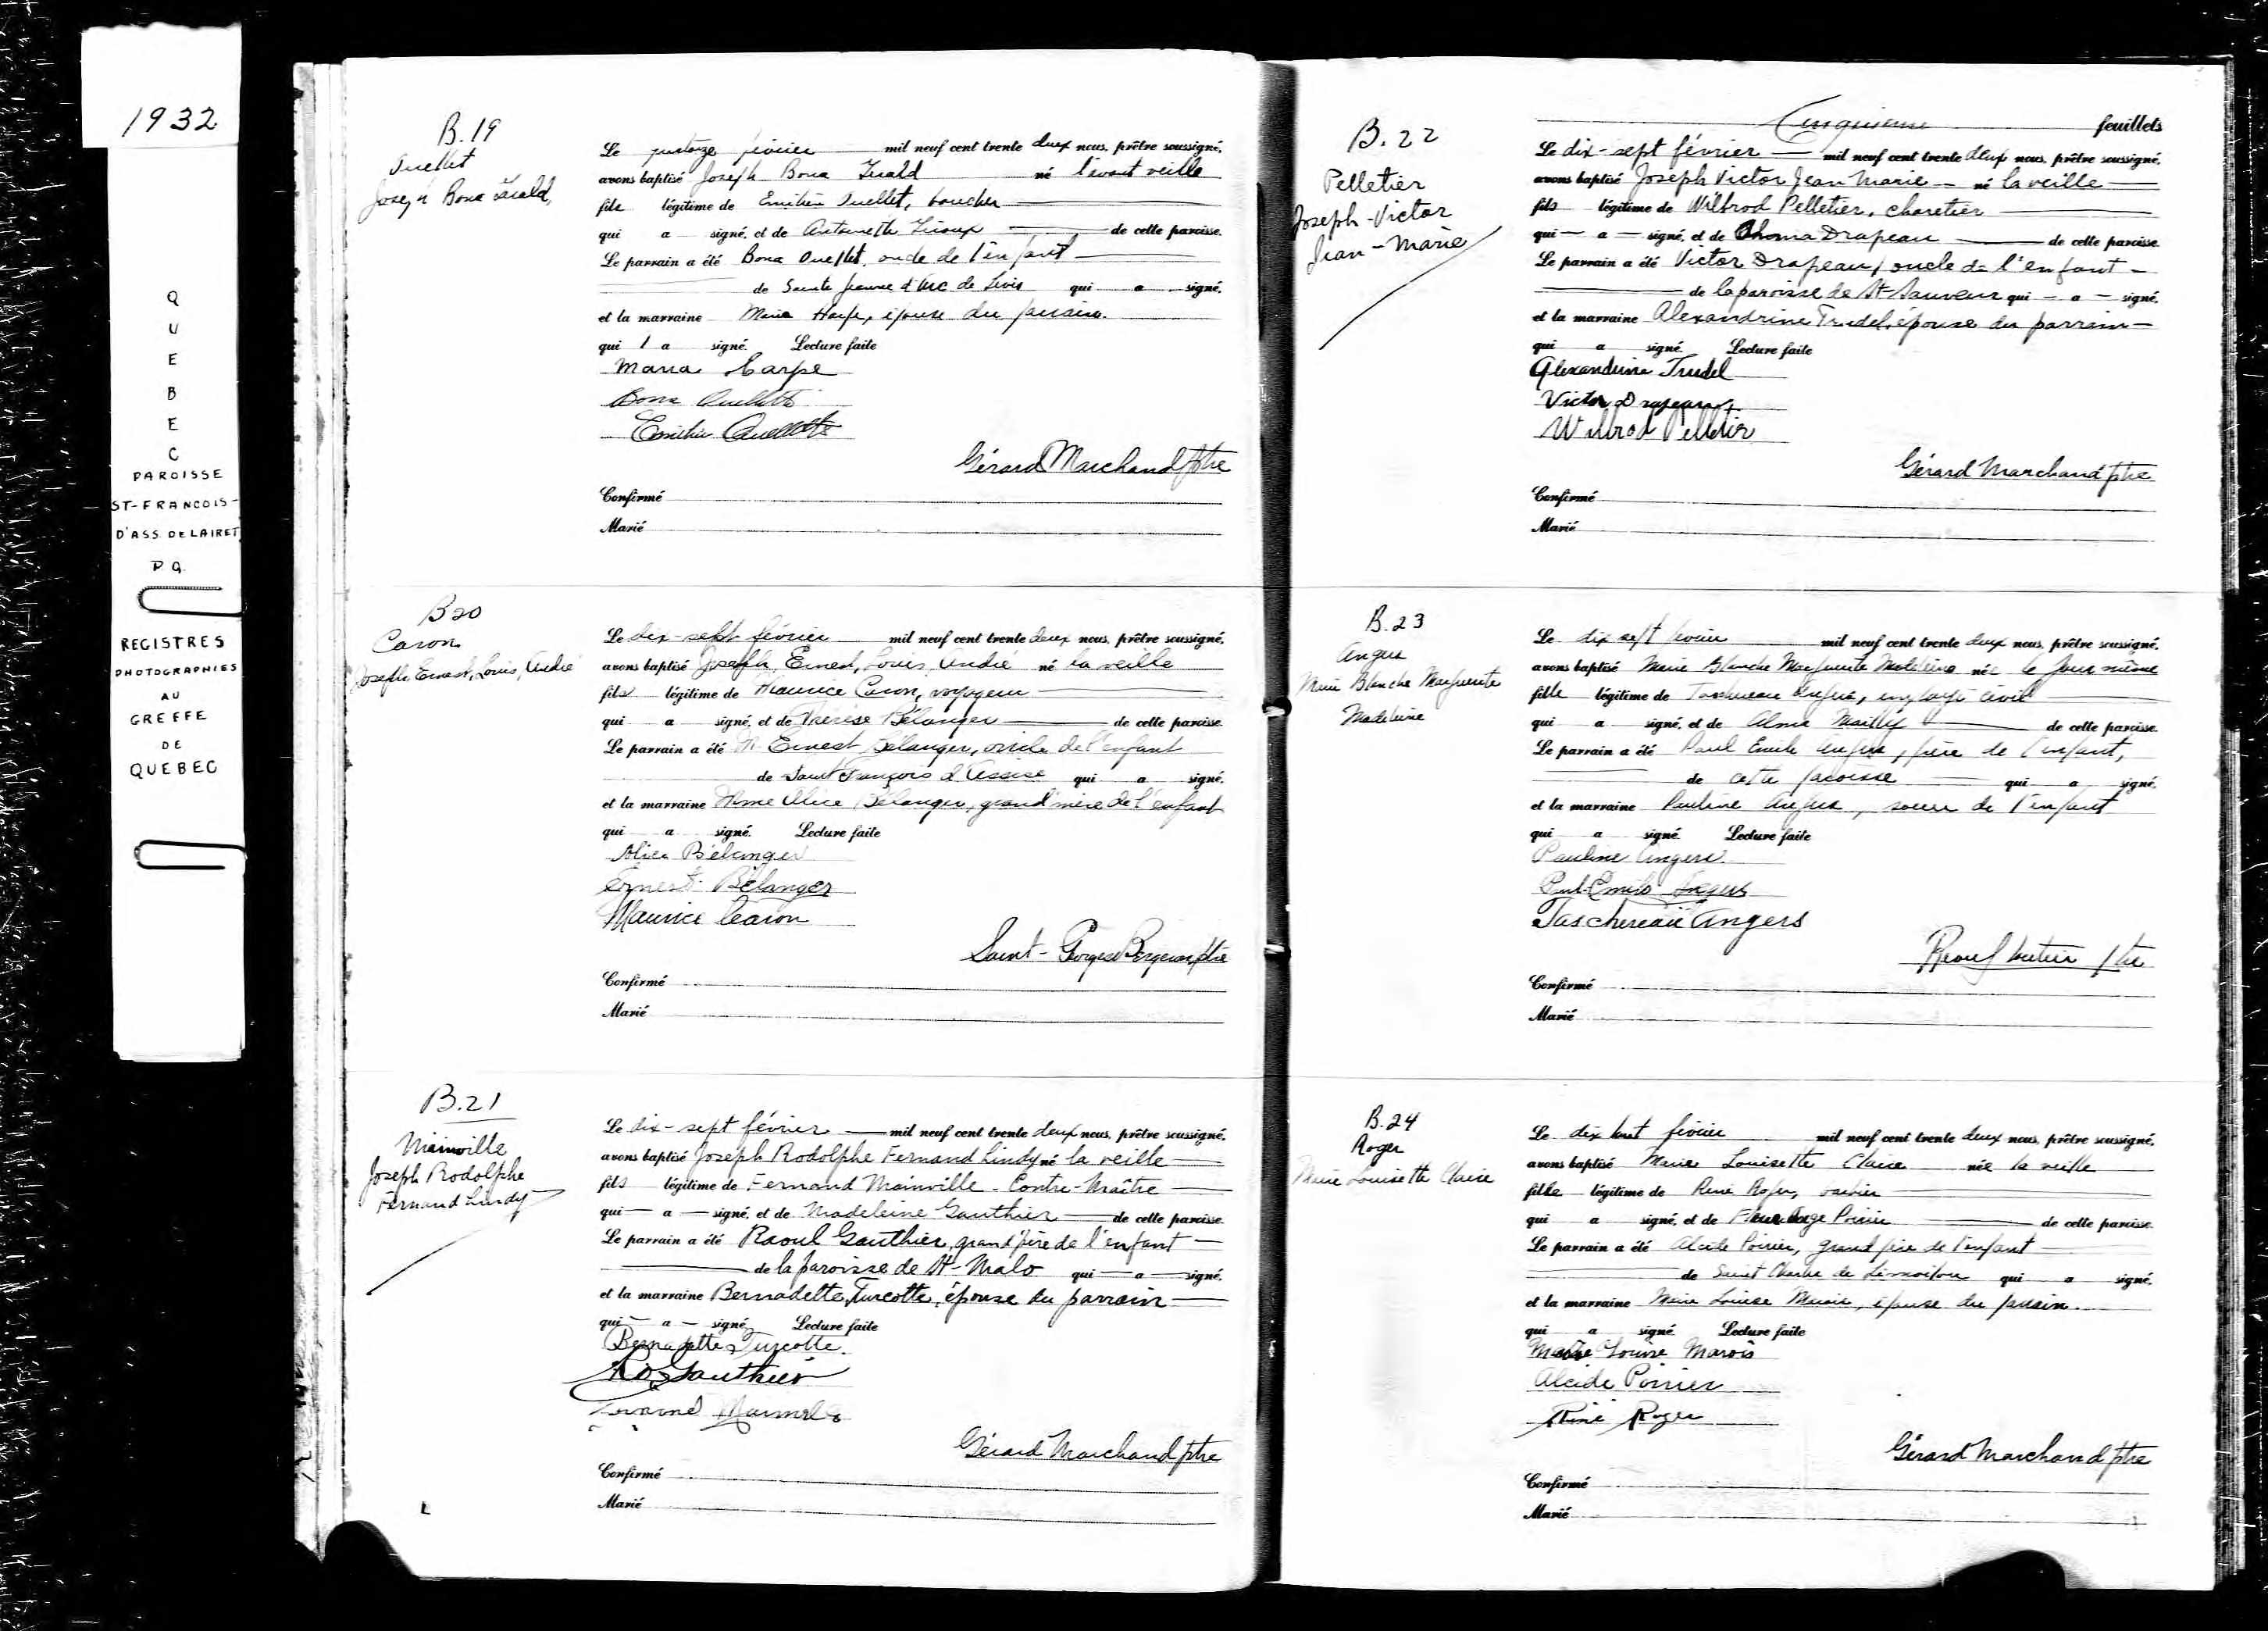 1932
QUEBEC
PAROISSE
ST-FRANCOIS-
D'ASS. DE LAIRET
P.Q.
REGISTRES
PHOTOGRAPHIES
AU
GREFFE
DE
QUEBEC
B.19
Ouellet
Joseph Bona
Le quatorze février mil neuf cent trente deux nous, prêtre soussigné,
avons baptisé Joseph Bona né l'avant veille
fils légitime de Emilien Ouellet, boucher
qui a signé, et de Antoinette de cette paroisse.
Le parrain a été Bona Ouellet, oncle de l'enfant
de Sainte Jeanne d'Arc de Lévis qui a signé,
et la marraine Maria Harpe, épouse du parrain.
qui a signé. Lecture faite
Maria Harpe
Bona Ouellette
Emilien Ouellette
Gérard Marchand ptre
Confirmé
Marié
B20
Caron
Joseph Ernest, Louis, André
Le dix-sept février mil neuf cent trente deux nous, prêtre soussigné,
avons baptisé Joseph, Ernest, Louis, André né la veille
fils légitime de Maurice Caron, voyageur
qui a signé, et de Thérèse Bélanger de cette paroisse.
Le parrain a été M. Ernest Bélanger, oncle de l'enfant
de Saint François d'Assise qui a signé,
et la marraine Mme Alice Bélanger, grand'mère de l'enfant
qui a signé. Lecture faite
Alice Bélanger
Ernest Bélanger
Maurice Caron
Saint-Georges Bergeron, ptre
Confirmé
Marié
B.21
Mainville
Joseph Rodolphe
Fernand Lindy
Le dix-sept février mil neuf cent trente deux nous, prêtre soussigné,
avons baptisé Joseph Rodolphe Fernand Lindy né la veille
fils légitime de Fernand Mainville - Contre-Maître
qui a signé, et de Madeleine Gauthier de cette paroisse.
Le parrain a été Raoul Gauthier, grand'père de l'enfant
de la paroisse de St-Malo qui a signé,
et la marraine Bernadette Turcotte, épouse du parrain
qui a signé. Lecture faite
Bernadette Turcotte.
Gauthier
Fernand Mainville
Gérard Marchand ptre
Confirmé
Marié
Cinquième feuillets
B.22
Pelletier
Joseph-Victor
Jean-Marie
Le dix-sept février mil neuf cent trente deux nous, prêtre soussigné,
avons baptisé Joseph Victor Jean Marie né la veille
fils légitime de Wilbrod Pelletier, charetier
qui a signé, et de Drapeau de cette paroisse.
Le parrain a été Victor Drapeau, oncle de l'enfant
de la paroisse de St-Sauveur qui a signé,
et la marraine Alexandrine Trudel, épouse du parrain
qui a signé. Lecture faite
Alexandrine Trudel
Victor Drapeau
Wilbrod Pelletier
Gérard Marchand ptre
Confirmé
Marié
B.23
Angers
Marie Blanche Marguerite
Madeleine
Le dix sept février mil neuf cent trente deux nous, prêtre soussigné,
avons baptisé Marie Blanche Marguerite Madeleine née le jour même
fille légitime de Taschereau Angers, employé civil
qui a signé, et de Alma Mailly de cette paroisse.
Le parrain a été Paul Emile Angers, frère de l'enfant,
de cette paroisse qui a signé,
et la marraine Pauline Angers, soeur de l'enfant
qui a signé. Lecture faite
Pauline Angers
Paul-Emile Angers
Taschereau Angers
Raoul ptre
Confirmé
Marié
B.24
Roger
Marie Louisette Claire
Le dix huit février mil neuf cent trente deux nous, prêtre soussigné,
avons baptisé Marie Louisette Claire née la veille
fille légitime de René Roger, barbier
qui a signé, et de Fleur-Ange Poirier de cette paroisse.
Le parrain a été Alcide Poirier, grand père de l'enfant
de Saint Charles de Limoilou qui a signé,
et la marraine Marie Louise Marois, épouse du parrain.
qui a signé. Lecture faite
Marie Louise Marois
Alcide Poirier
René Roger
Gérard Marchand ptre
Confirmé
Marié